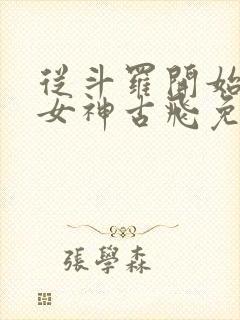 從斗羅開始
女神古飛免
張學森